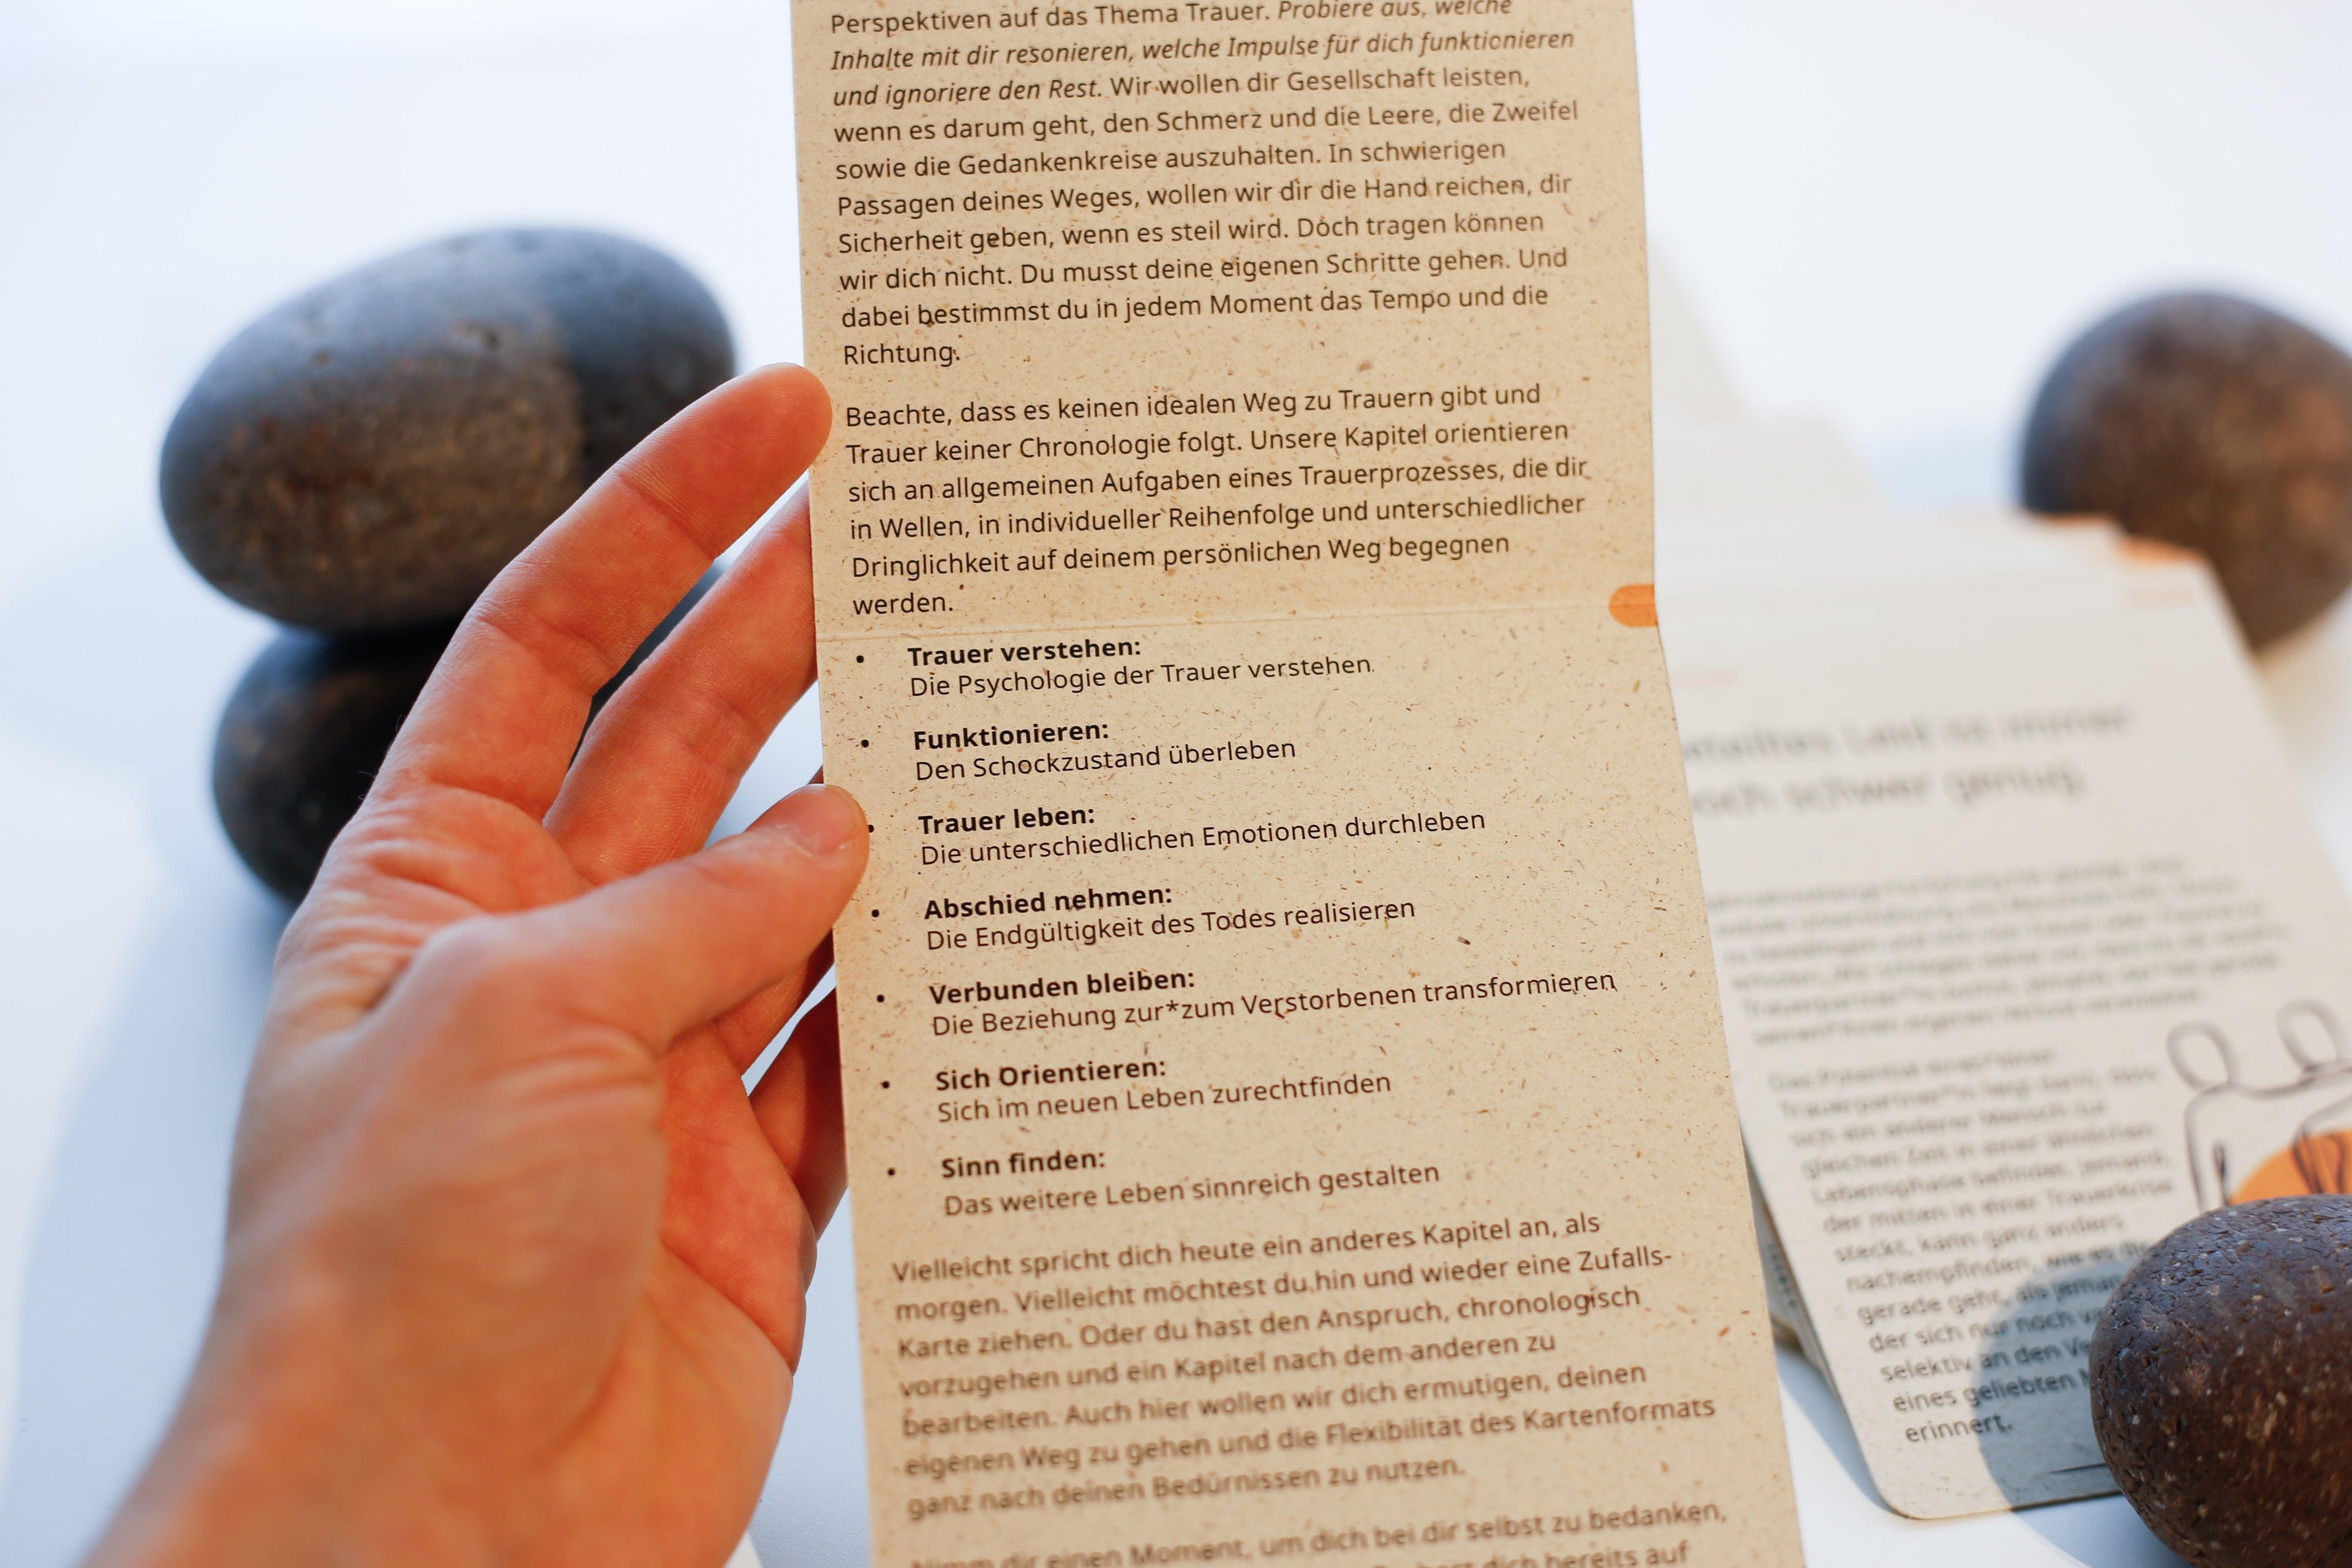 Perspektiven auf das Thema Trauer. Probiere aus, welche
Inhalte mit dir resonieren, welche Impulse für dich funktionieren
und ignoriere den Rest. Wir wollen dir Gesellschaft leisten,
wenn es darum geht, den Schmerz und die Leere, die Zweifel
sowie die Gedankenkreise auszuhalten. In schwierigen
Passagen deines Weges, wollen wir dir die Hand reichen, dir
Sicherheit geben, wenn es steil wird. Doch tragen können
wir dich nicht. Du musst deine eigenen Schritte gehen. Und
dabei bestimmst du in jedem Moment das Tempo und die
Richtung.
Beachte, dass es keinen idealen Weg zu Trauern gibt und
Trauer keiner Chronologie folgt. Unsere Kapitel orientieren
sich an allgemeinen Aufgaben eines Trauerprozesses, die dir
in Wellen, in individueller Reihenfolge und unterschiedlicher
Dringlichkeit auf deinem persönlichen Weg begegnen
werden.
• Trauer verstehen:
Die Psychologie der Trauer verstehen
• Funktionieren:
Den Schockzustand überleben
• Trauer leben:
Die unterschiedlichen Emotionen durchleben
• Abschied nehmen:
Die Endgültigkeit des Todes realisieren
• Verbunden bleiben:
Die Beziehung zur*zum Verstorbenen transformieren
• Sich Orientieren:
Sich im neuen Leben zurechtfinden
• Sinn finden:
Das weitere Leben sinnreich gestalten
Vielleicht spricht dich heute ein anderes Kapitel an, als
morgen. Vielleicht möchtest du hin und wieder eine Zufalls-
Karte ziehen. Oder du hast den Anspruch, chronologisch
vorzugehen und ein Kapitel nach dem anderen zu
bearbeiten. Auch hier wollen wir dich ermutigen, deinen
eigenen Weg zu gehen und die Flexibilität des Kartenformats
ganz nach deinen Bedürnissen zu nutzen.
Nimm dir einen Moment, um dich bei dir selbst zu bedanken,
dich bereits auf
Leid ist immer
schwer genug.
Das Potential
sich ein anderer Mensch zur
gleichen Zeit in einer ähnlichen
Lebensphase befindet, jemand,
der mitten in einer Trauerkrise
steckt, kann ganz anders
nachempfinden, wie es dir
gerade geht, als
der sich nur noch
selektiv an den
eines geliebten
erinnert.